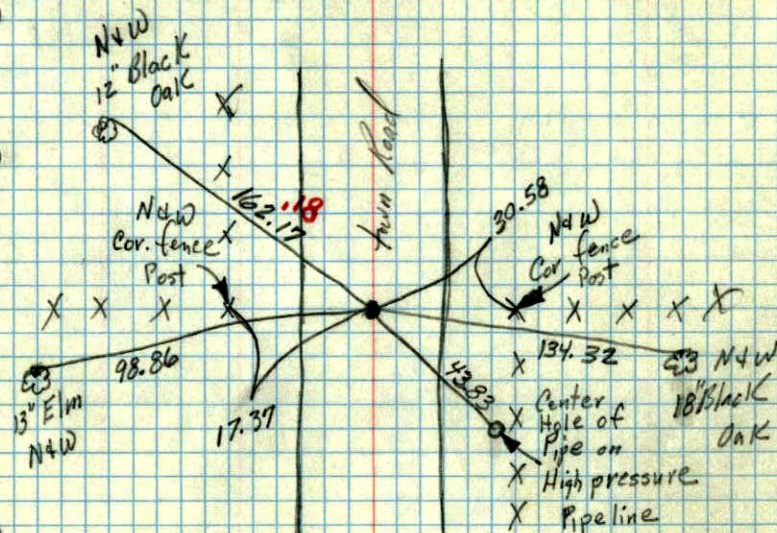 N&W
12" Black
Oak
162.17
.18
Town Road
30.58
N&W
Cor. fence
Post
N&W
Cor fence
Post
98.86
13" Elm
N&W
17.37
134.32
N&W
18" Black
Oak
43.83
Center
Hole of
Pipe on
High pressure
Pipeline